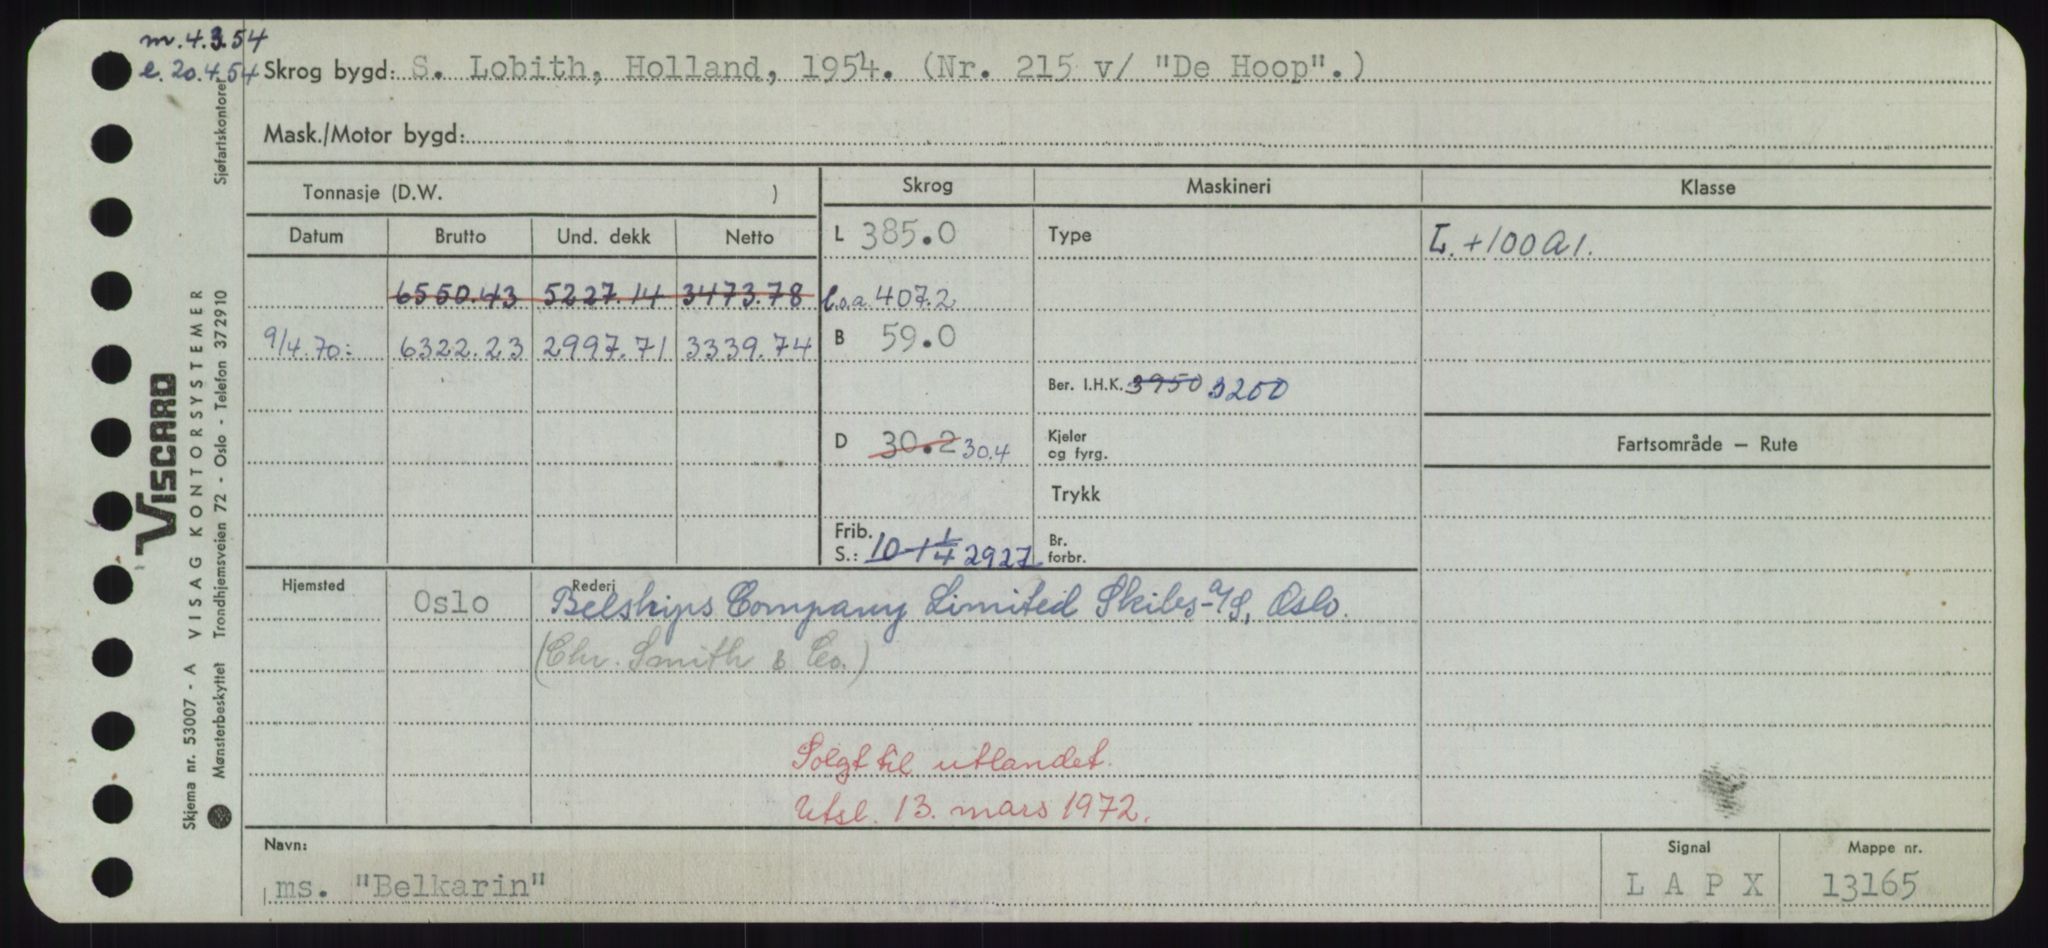 m. 4.3.54
e. 20.4.54
Skrog bygd: S. Lobith, Holland, 1954. (Nr. 215 v/ "De Hoop".)
Mask./Motor bygd:
Tonnasje (D.W. )
Skrog Maskineri Klasse
Datum Brutto Und. dekk Netto
L 385.0 Type L. +100A1.
6550.43 5227.14 3473.78 l.o.a. 407.2
9/4.70: 6322.23 2997.71 3339.74 B 59.0
Ber. I.H.K. 3950 3200
D 30.2 30.4 Kjeler og fyrg. Fartsområde — Rute
Trykk
Frib. S.: 10-1 1/4 2927 Br. forbr.
Hjemsted Oslo Rederi Belships Company Limited Skibs-A/S, Oslo.
(Chr. Smith & Co.)
Solgt til utlandet.
Utsl. 13. mars 1972.
Navn: Signal Mappe nr.
ms. "Belkarin" L A P X 13165
VISCARD
Skjema nr. 53007 - A VISAG KONTORSYSTEMER
Mønsterbeskyttet Trondhjemsveien 72 - Oslo - Telefon 372910
Sjøfartskontoret